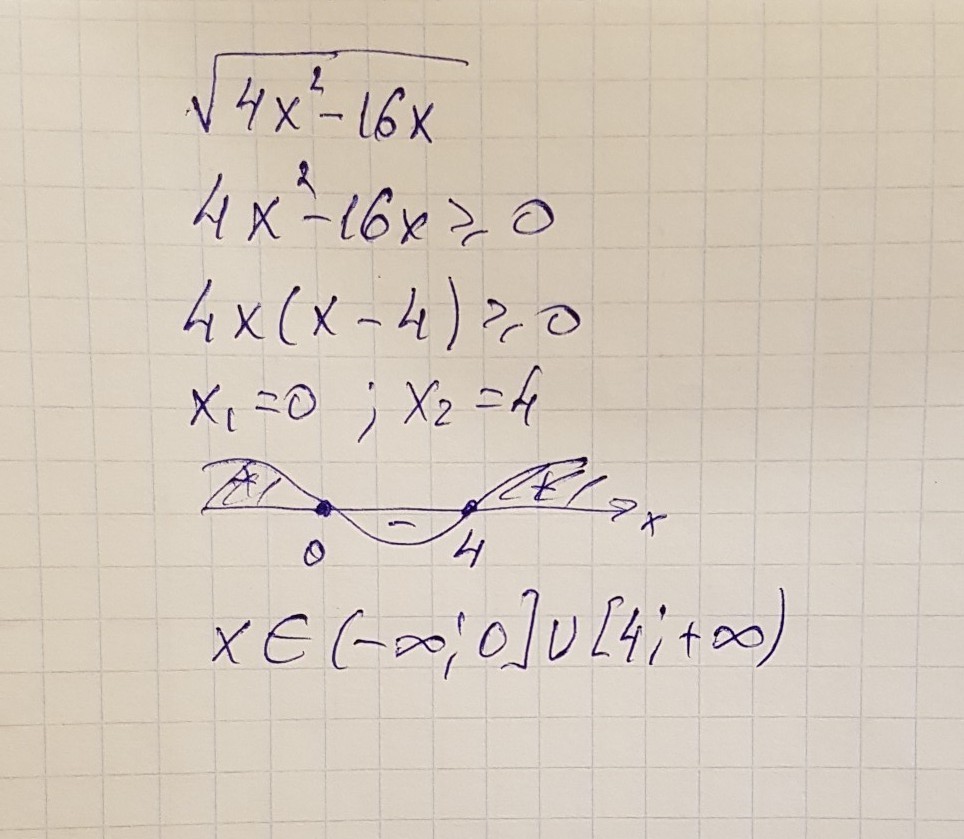 √(4x²-16x)
4x²-16x ≥ 0
4x(x-4) ≥ 0
x₁=0 ; x₂=4
+ - + x
0 4
x∈(-∞;0]∪[4;+∞)